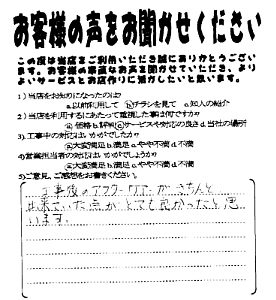 お客様の声をお聞かせください
この度は当店をご利用いただき誠にありがとうござい
ます。お客様の率直なお声を聞かせていただき、より
よいサービスとお店作りに活かしたいと思います。
1)当店をお知りになったのは?
a.以前利用して ⓑチラシを見て c.知人の紹介
2)当店を利用するにあたって重視した事は何ですか?
ⓐ価格 b.評判 ⓒサービスや対応の良さ d.当社の場所
3)工事中の対応はいかがでしたか?
ⓐ大変満足 b.満足 c.やや不満 d.不満
4)営業担当者の対応はいかがでしょうか?
ⓐ大変満足 b.満足 c.やや不満 d.不満
5)ご意見、ご感想をお書きください。
工事後のアフターケアーがきちんと
出来ていた点がとても良かったと思
います。